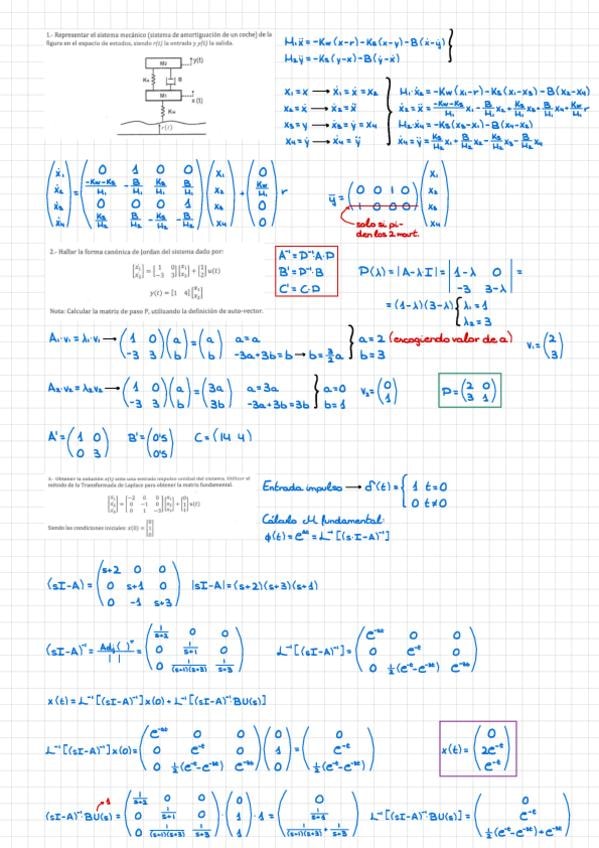 1.- Representar el sistema mecánico (sistema de amortiguación de un coche) de la
figura en el espacio de estados, siendo r(t) la entrada y y(t) la salida.
M₂ y(t)
Ks B
M₁ x(t)
Kw
r(t)
M₁ẍ = -Kw(x-r) - Ks(x-y) - B(ẋ-ẏ)
M₂ÿ = -Ks(y-x) - B(ẏ-ẋ)
x₁ = x → ẋ₁ = ẋ = x₂
x₂ = ẋ → ẋ₂ = ẍ
x₃ = y → ẋ₃ = ẏ = x₄
x₄ = ẏ → ẋ₄ = ÿ
M₁·ẋ₂ = -Kw(x₁-r) - Ks(x₁-x₃) - B(x₂-x₄)
ẋ₂ = ẍ = (-Kw-Ks)/M₁ x₁ - B/M₁ x₂ + Ks/M₁ x₃ + B/M₁ x₄ + Kw/M₁ r
M₂·ẋ₄ = -Ks(x₃-x₁) - B(x₄-x₂)
ẋ₄ = ÿ = Ks/M₂ x₁ + B/M₂ x₂ - Ks/M₂ x₃ - B/M₂ x₄
(ẋ₁) = (0 1 0 0)(x₁) + (0) r
(ẋ₂) ((-Kw-Ks)/M₁ -B/M₁ Ks/M₁ B/M₁)(x₂) (Kw/M₁)
(ẋ₃) (0 0 0 1)(x₃) (0)
(ẋ₄) (Ks/M₂ B/M₂ -Ks/M₂ -B/M₂)(x₄) (0)
ȳ = (0 0 1 0)(x₁)
(1 0 0 0)(x₂)
(x₃)
(x₄)
solo si pi-
den los 2 mov.
2.- Hallar la forma canónica de Jordan del sistema dado por:
[ẋ₁] = [1 0][x₁] + [1] u(t)
[ẋ₂] [-3 3][x₂] [2]
y(t) = [1 4][x₁]
[x₂]
Nota: Calcular la matriz de paso P, utilizando la definición de auto-vector.
A' = D⁻¹·A·D
B' = D⁻¹·B
C' = C·D
P(λ) = |A-λI| = |1-λ 0| =
|-3 3-λ|
= (1-λ)(3-λ) { λ₁ = 1
λ₂ = 3
A₁·v₁ = λ₁·v₁ → (1 0)(a) = (a) a = a
(-3 3)(b) (b) -3a+3b = b → b = 3/2 a
a = 2 (escogiendo valor de a)
b = 3
v₁ = (2)
(3)
A₂·v₂ = λ₂v₂ → (1 0)(a) = (3a) a = 3a
(-3 3)(b) (3b) -3a+3b = 3b
a = 0
b = 1
v₂ = (0)
(1)
P = (2 0)
(3 1)
A' = (1 0) B' = (0'5) C = (14 4)
(0 3) (0'5)
3.- Obtener la solución x(t) ante una entrada impulso unidad del sistema. Utilizar el
método de la Transformada de Laplace para obtener la matriz fundamental.
[ẋ₁] = [-2 0 0][x₁] + [0] u(t)
[ẋ₂] [0 -1 0][x₂] [1]
[ẋ₃] [0 1 -3][x₃] [1]
Siendo las condiciones iniciales: x(0) = [0]
[1]
[0]
Entrada impulso → δ(t) = { 1 t=0
0 t≠0
Cálculo M fundamental:
φ(t) = eᴬᵗ = L⁻¹[(s·I-A)⁻¹]
(sI-A) = (s+2 0 0) |sI-A| = (s+2)(s+3)(s+1)
(0 s+1 0)
(0 -1 s+3)
(sI-A)⁻¹ = Adj( )ᵀ/| | = (1/(s+2) 0 0)
(0 1/(s+1) 0)
(0 1/((s+1)(s+3)) 1/(s+3))
L⁻¹[(sI-A)⁻¹] = (e⁻²ᵗ 0 0)
(0 e⁻ᵗ 0)
(0 ½(e⁻ᵗ-e⁻³ᵗ) e⁻³ᵗ)
x(t) = L⁻¹[(sI-A)⁻¹]x(0) + L⁻¹[(sI-A)⁻¹BU(s)]
L⁻¹[(sI-A)⁻¹]x(0) = (e⁻²ᵗ 0 0)(0) = (0)
(0 e⁻ᵗ 0)(1) (e⁻ᵗ)
(0 ½(e⁻ᵗ-e⁻³ᵗ) e⁻³ᵗ)(0) (½(e⁻ᵗ-e⁻³ᵗ))
x(t) = (0)
(2e⁻ᵗ)
(e⁻ᵗ)
1
(sI-A)⁻¹·BU(s) = (1/(s+2) 0 0)(0)·1 = (0)
(0 1/(s+1) 0)(1) (1/(s+1))
(0 1/((s+1)(s+3)) 1/(s+3))(1) (1/((s+1)(s+3)) + 1/(s+3))
L⁻¹[(sI-A)⁻¹BU(s)] = (0)
(e⁻ᵗ)
(½(e⁻ᵗ-e⁻³ᵗ)+e⁻³ᵗ)